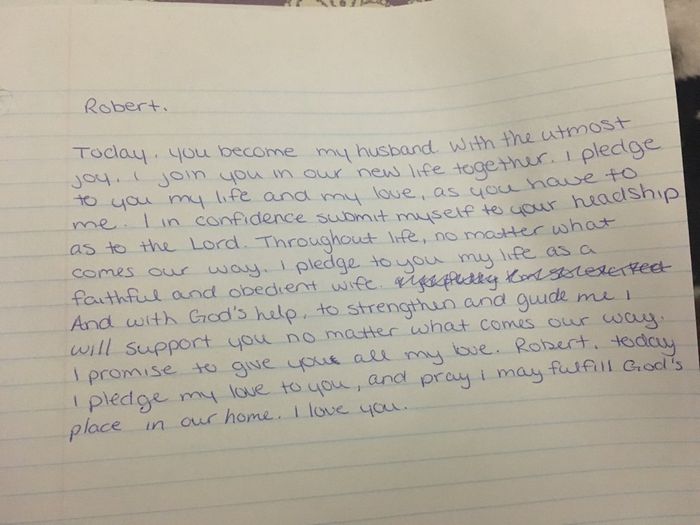 Robert.
Today, you become my husband. With the utmost
joy, I join you in our new life together. I pledge
to you my life and my love, as you have to
me. I in confidence submit myself to your headship
as to the Lord. Throughout life, no matter what
comes our way, I pledge to you my life as a
faithful and obedient wife.
And with God's help, to strengthen and guide me I
will support you no matter what comes our way.
I promise to give you all my love. Robert, today
I pledge my love to you, and pray i may fulfill God's
place in our home. I love you.